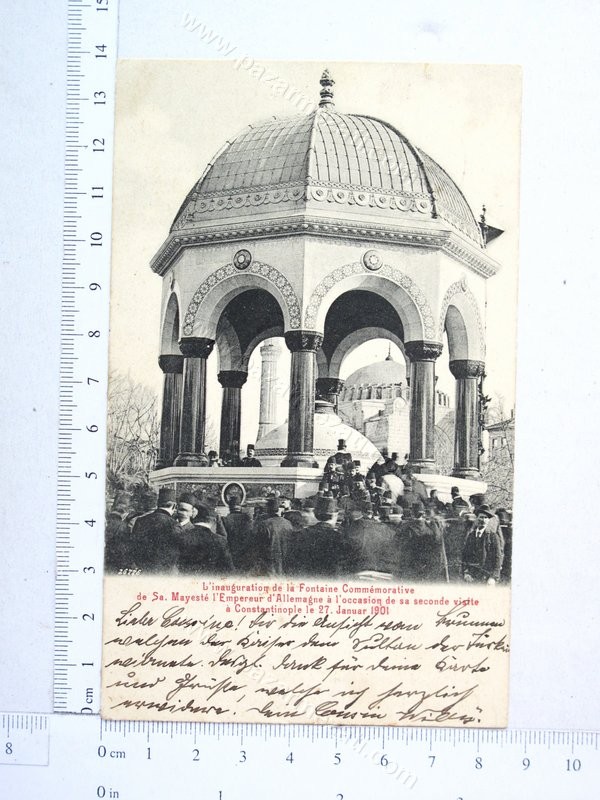 www.pazarium.com
28776
L'inauguration de la Fontaine Commémorative
de Sa. Mayesté l'Empereur d'Allemagne à l'occasion de sa seconde visite
à Constantinople le 27. Januar 1901
Lieber Cousine! Hir die Ansicht vom Brunnen
welchen der Kaiser dem Sultan der Türkei
widmete. Dank für deine Karte
und Grüsse, welche ich herzlich
erwidere. Dein Cousin Willy.
0 cm 1 2 3 4 5 6 7 8 9 10 11 12 13 14 15
8
0 cm 1 2 3 4 5 6 7 8 9 10
0 in 1 2 3